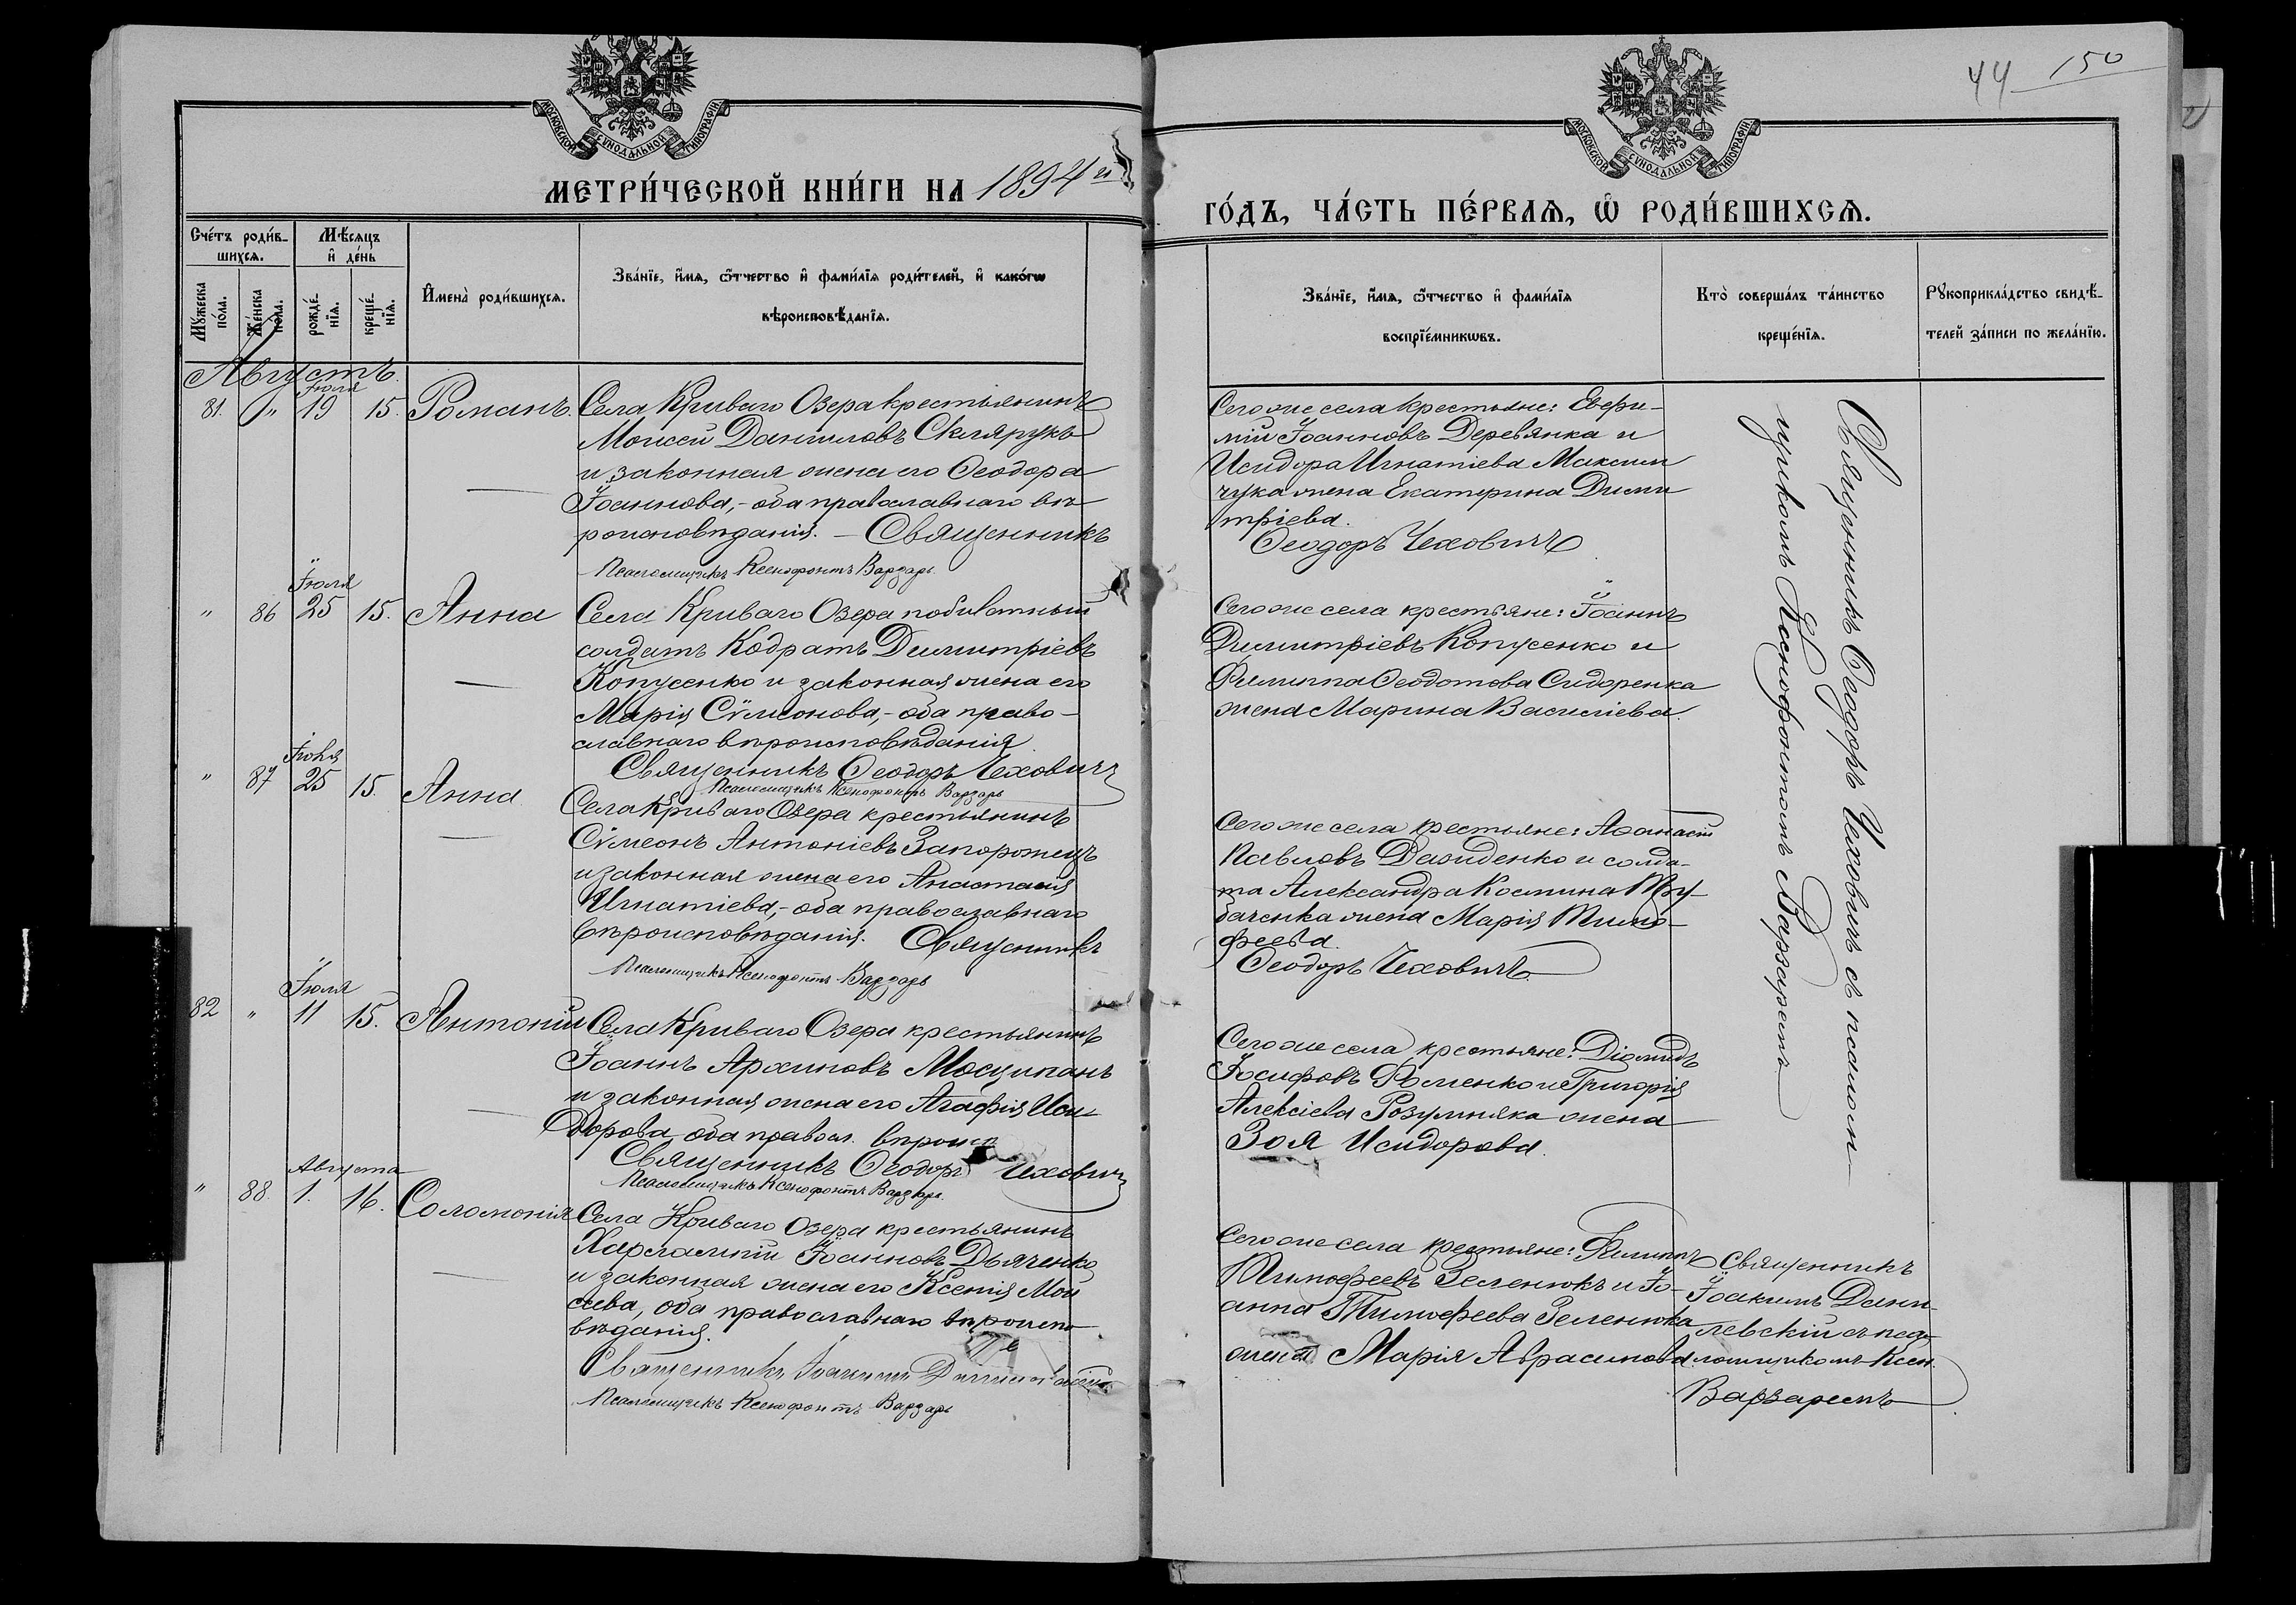 44 150
МОСКОВСКОЙ СѴНОДАЛЬНОЙ ТИПОГРАФІИ
МОСКОВСКОЙ СѴНОДАЛЬНОЙ ТИПОГРАФІИ
МЕТРИ́ЧЕСКОЙ КНИ́ГИ НА 1894й
ГО́ДЪ, ЧА́СТЬ ПЕ́РВАѦ, Ѡ РОДИ́ВШИХСѦ.
Сче́тъ роди́в-
шихсѧ.
Мѣ́сѧцъ
и҆ де́нь
Мꙋ́жеска
по́ла.
Же́нска
по́ла.
рожде́-
нїѧ.
креще́-
нїѧ.
И҆мена̀ роди́вшихсѧ.
Зва́нїе, и҆́мѧ, ѻ҆́тчество и҆ фами́лїѧ роди́телей, и҆ како́гѡ
вѣроисповѣ́данїѧ.
Зва́нїе, и҆́мѧ, ѻ҆́тчество и҆ фами́лїѧ
воспрїе́мникѡвъ.
Кто̀ соверша́лъ та́инство
креще́нїѧ.
Рꙋкоприкла́дство свидѣ́-
телей за́писи по жела́нїю.
Августъ.
Іюля
81. " 19 15. Романъ.
Села Криваго Озера крестьянинъ
Моисей Даниловъ Склярукъ
и законная жена его Ѳеодора
Іоаннова,- оба православнаго вѣ-
роисповѣданія. - Священникъ
Псаломщикъ Ксенофонтъ Варзарь
Сего же села крестьяне: Евфи-
мій Іоанновъ Деревянка и
Исидора Игнатіева Максим
чука жена Екатерина Дими
тріева.
Ѳеодоръ Чеховичъ
Іюля
" 86 25 15. Анна
Села Криваго Озера побилетный
солдатъ Кодратъ Димитріевъ
Копусенко и законная жена его
Марія Сѵмеонова,- оба право-
славнаго вѣроисповѣданія.
Священникъ Ѳеодоръ Чеховичъ
Псаломщикъ Ксенофонтъ Варзарь
Сего же села крестьяне: Іоаннъ
Димитріевъ Копусенко и
Филиппа Ѳеодотова Сидоренка
жена Марина Василіева.
Іюля
" 87 25 15. Анна
Села Криваго Озера крестьянинъ
Сѵмеонъ Антоніевъ Запорожецъ
и законная жена его Анастасія
Игнатіева,- оба православнаго
вѣроисповѣданія. Священникъ
Псаломщикъ Ксенофонтъ Варзарь
Сего же села крестьяне: Аѳанасій
Павловъ Давиденко и солда-
та Александра Космина Тру-
баченка жена Марія Тимо-
феева.
Ѳеодоръ Чеховичъ
Іюля
82 " 11 15. Антоній
Села Криваго Озера крестьянинъ
Іоаннъ Архиповъ Мосципанъ
и законная жена его Агафія Иси-
дорова, оба правосл. вѣроисп
Священникъ Ѳеодоръ Чеховичъ
Псаломщикъ Ксенофонтъ Варзарь.
Сего же села крестьяне: Діомидъ
Іосифовъ Фоменко и Григорія
Алексіева Розумняка жена
Зоя Исидорова.
Августа
" 88. 1. 16. Соломонія
Села Криваго Озера крестьянинъ
Харлампій Іоанновъ Дьяченко
и законная жена его Ксенія Мои
сеева, оба православнаго вѣроиспо
вѣданія.
Священникъ Іоакимъ
Псаломщикъ Ксенофонтъ Варзарь
Сего же села крестьяне: Филиппъ
Тимофеевъ Зеленюкъ и Іо-
анна Тимофеева Зеленюка
жена Марія Аврамова
Священникъ Ѳеодоръ Чеховичъ съ псаломщ-
щикомъ Ксенофонтомъ Варзаремъ
Священникъ
Іоакимъ Дани-
левскій съ пса-
ломщикомъ Ксен.
Варзаремъ